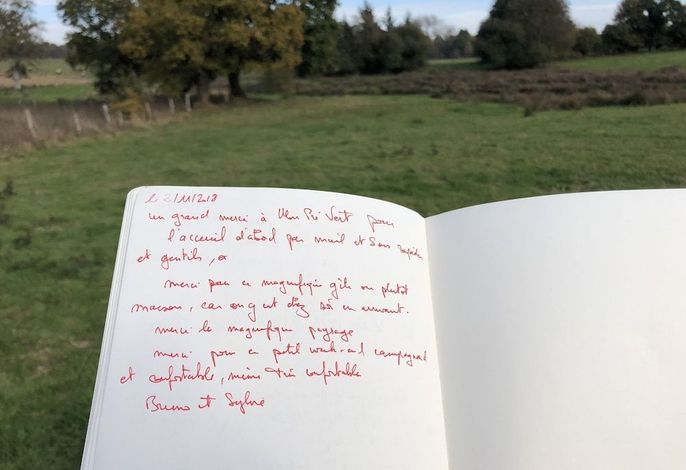 le 2/11/2018
un grand merci à Pré Vert pour
l'accueil d'abord par mail et sms rapides
et gentils,
merci pour ce magnifique gîte ou plutôt
maison, car on y est chez soi en arrivant.
merci le magnifique paysage
merci pour ce petit week-end campagnard
et confortable, même très confortable
Bruno et Sylvie